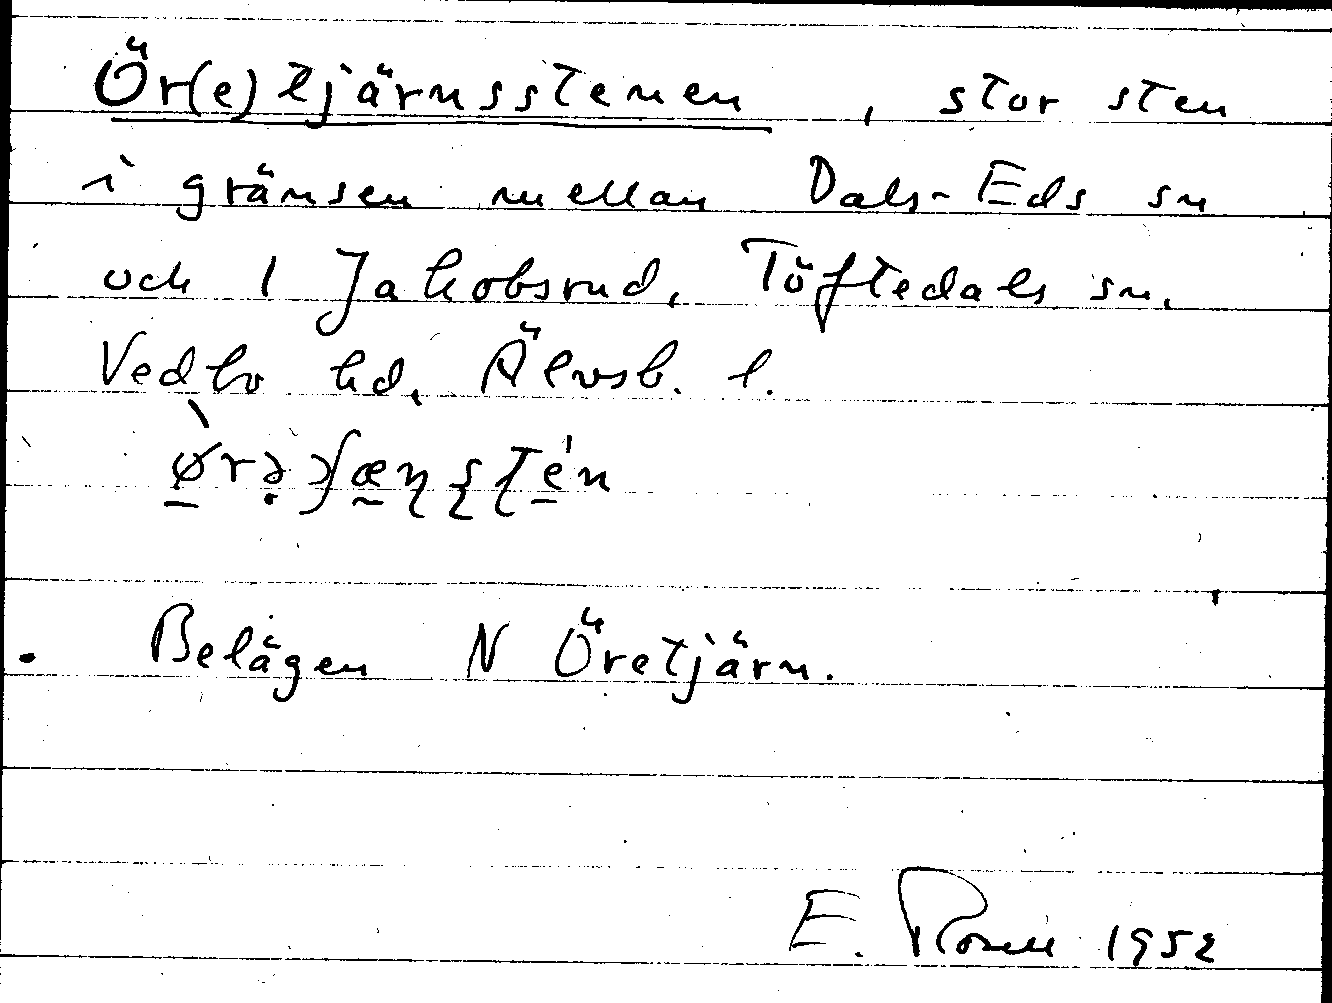 Ör(e)tjärnsstenen, stor sten
i gränsen mellan Dals-Eds sn
och 1 Jakobsrud, Töftedals sn,
Vedbo hd, Älvsb. l.
Belägen N Öretjärn.
E. Rosell 1952